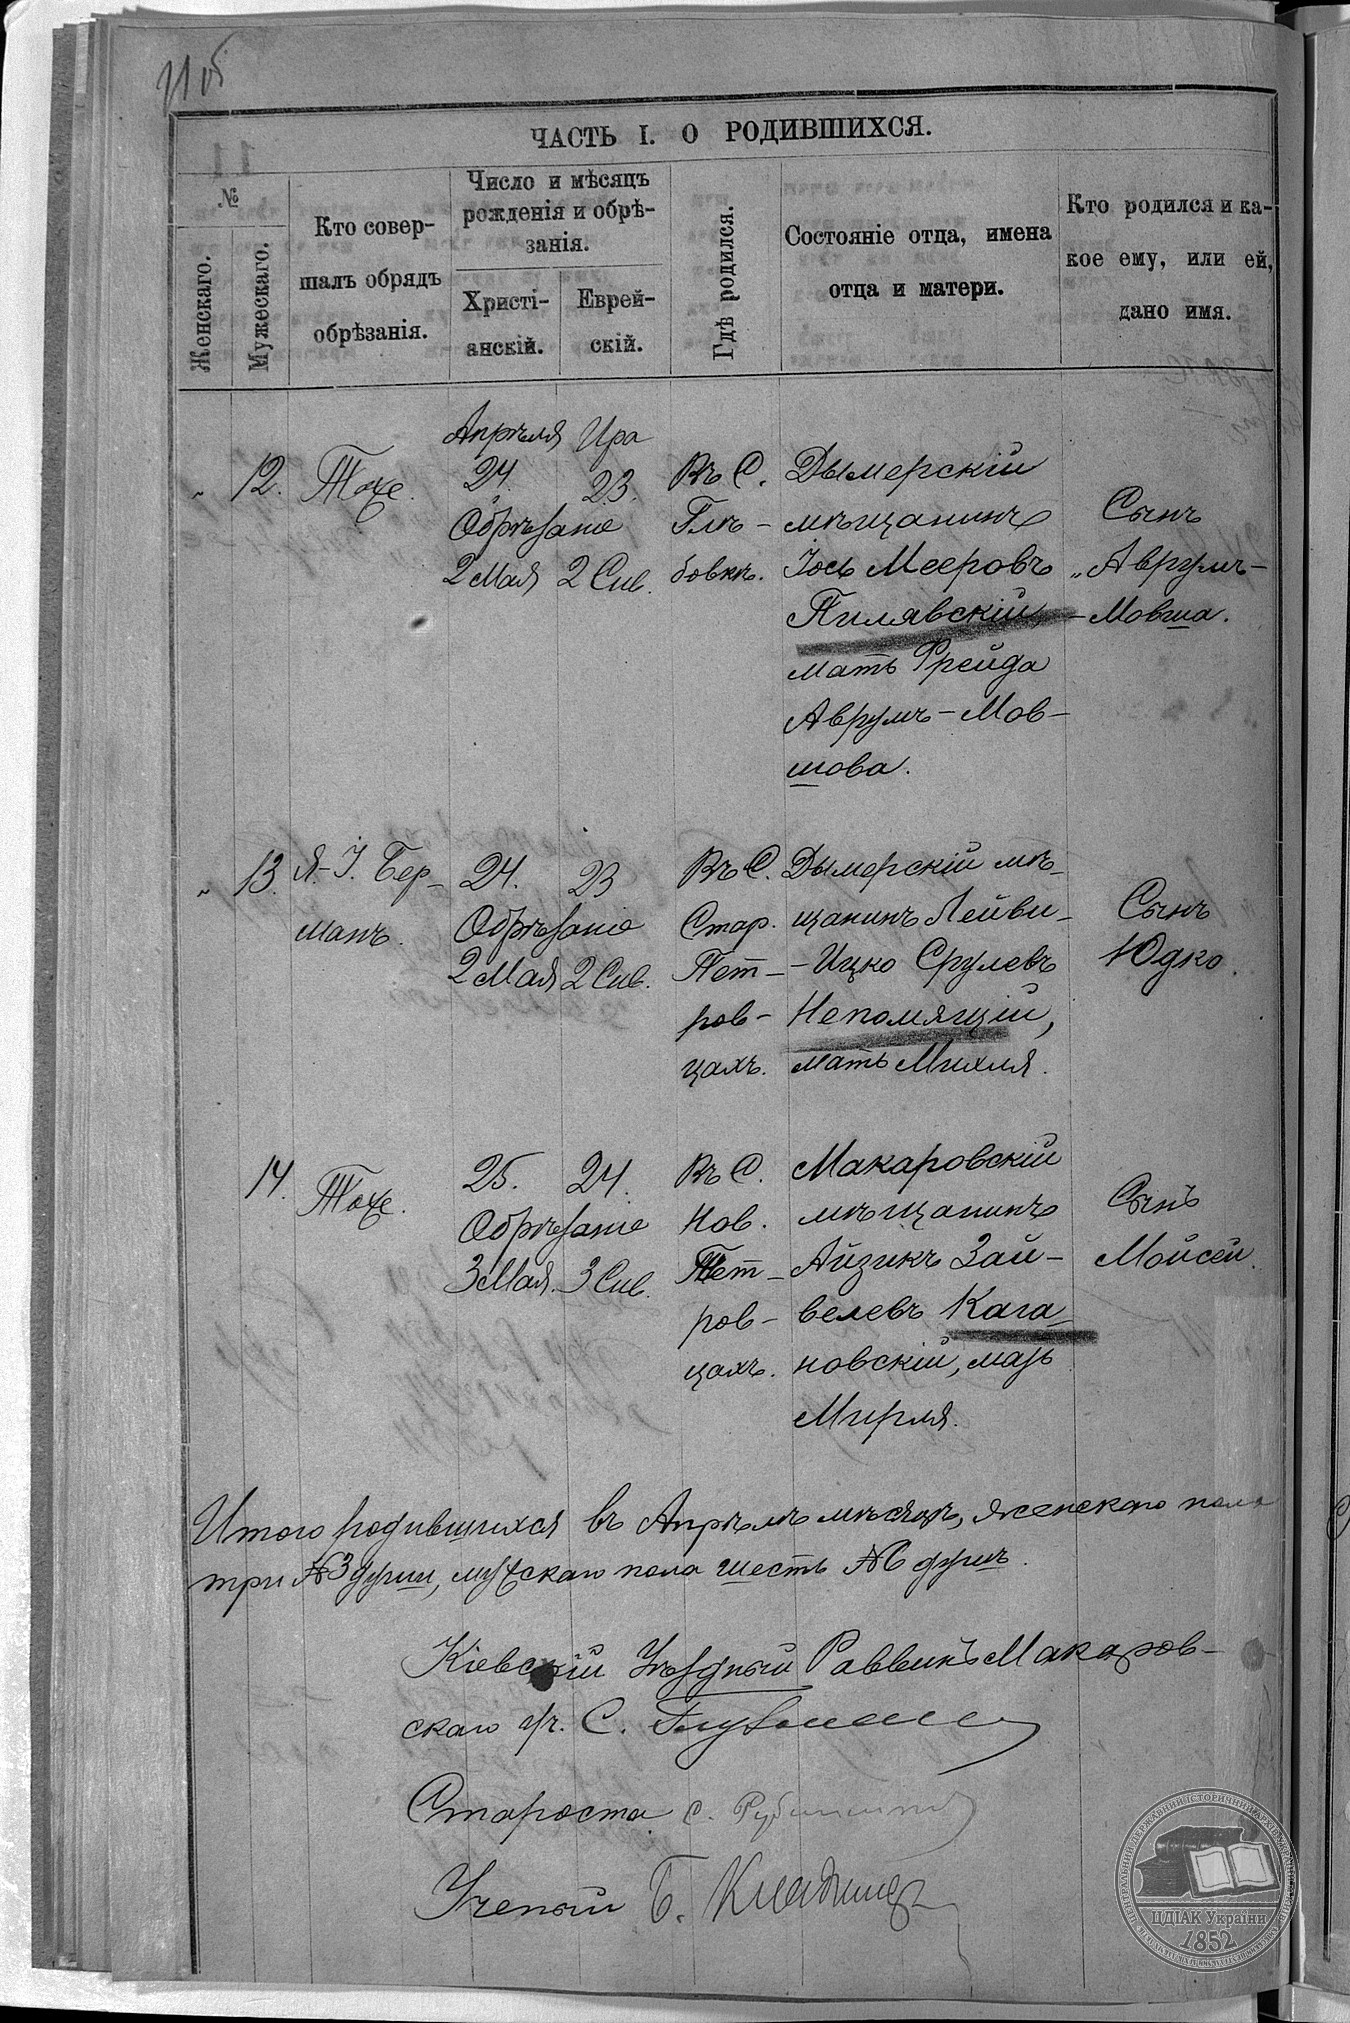 11 об
ЧАСТЬ I. О РОДИВШИХСЯ.
№
Женскаго.
Мужескаго.
Кто совер-
шалъ обрядъ
обрѣзанія.
Число и мѣсяцъ
рожденія и обрѣ-
занія.
Христі-
анскій.
Еврей-
скій.
Гдѣ родился.
Состояніе отца, имена
отца и матери.
Кто родился и ка-
кое ему, или ей,
дано имя.
„ 12. Тоже.
Апрѣля Ира
24. 23.
Обрѣзаніе
2 Мая 2 Сив.
Въ С.
Глѣ-
бовкѣ.
Дымерскій
мѣщанинъ
Іось Мееровъ
Пилявскій,
мать Фрейда
Аврумъ-Мов-
шова.
Сынъ
„Аврумъ-
-Мовша.
„ 13. Я.-І. Бер-
манъ.
24. 23
Обрѣзаніе
2 Мая 2 Сив.
Въ С.
Стар.
Пет-
ров-
цахъ.
Дымерскій мѣ-
щанинъ Лейви-
-Ицко Срулевъ
Непомящій,
мать Михля.
Сынъ
Юдко.
14. Тоже.
25. 24.
Обрѣзаніе
3 Мая. 3 Сив.
Въ С.
Нов.
Пет-
ров-
цахъ.
Макаровскій
мѣщанинъ
Айзикъ Зай-
велевъ Кага-
новскій, мать
Мирля.
Сынъ
Мойсей.
Итого родившихся въ Апрѣлѣ мѣсяцѣ, женскаго пола
три №3 души, мужскаго пола шесть №6 душъ.
Кіевскій Уѣздный Раввинъ Макаров-
скаго уч. С.
Староста С.
Ученый Б.
ЦДІАК України
1852